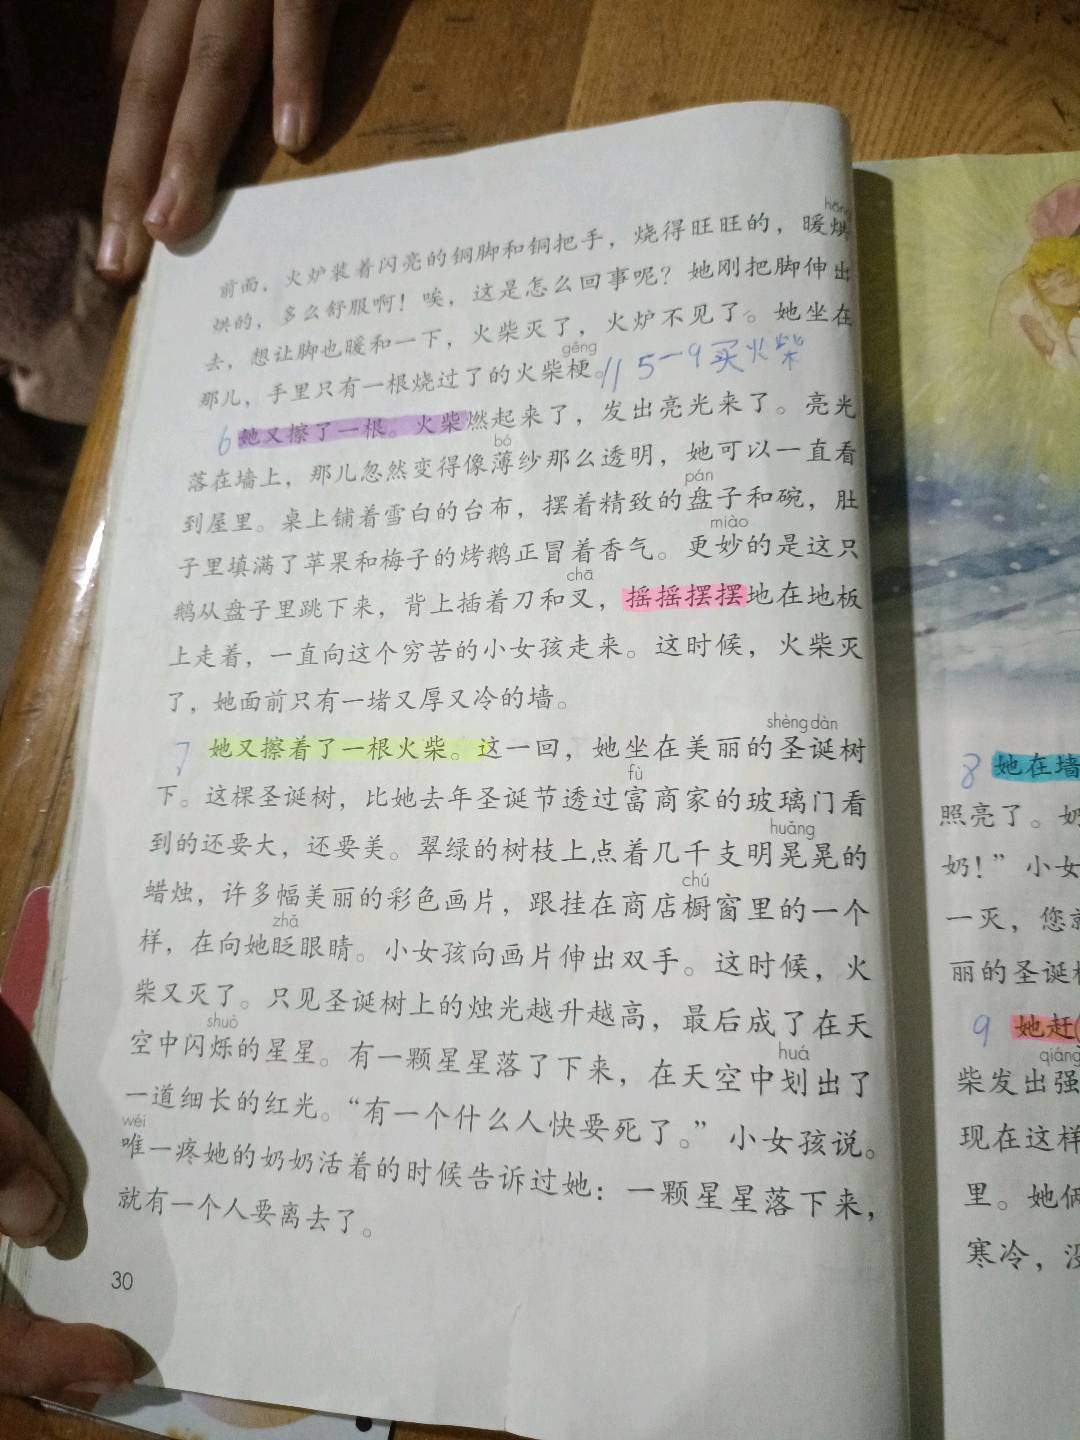 hōng
前面，火炉装着闪亮的铜脚和铜把手，烧得旺旺的，暖烘
烘的，多么舒服啊！唉，这是怎么回事呢？她刚把脚伸出
去，想让脚也暖和一下，火柴灭了，火炉不见了。她坐在
gěng
那儿，手里只有一根烧过了的火柴梗。// 5一9买火柴
6 她又擦了一根。火柴燃起来了，发出亮光来了。亮光
bó
落在墙上，那儿忽然变得像薄纱那么透明，她可以一直看
pán
到屋里。桌上铺着雪白的台布，摆着精致的盘子和碗，肚
miào
子里填满了苹果和梅子的烤鹅正冒着香气。更妙的是这只
chā
鹅从盘子里跳下来，背上插着刀和叉，摇摇摆摆地在地板
上走着，一直向这个穷苦的小女孩走来。这时候，火柴灭
了，她面前只有一堵又厚又冷的墙。
shèng dàn
7 她又擦着了一根火柴。这一回，她坐在美丽的圣诞树
fù
下。这棵圣诞树，比她去年圣诞节透过富商家的玻璃门看
huǎng
到的还要大，还要美。翠绿的树枝上点着几千支明晃晃的
chú
蜡烛，许多幅美丽的彩色画片，跟挂在商店橱窗里的一个
zhǎ
样，在向她眨眼睛。小女孩向画片伸出双手。这时候，火
柴又灭了。只见圣诞树上的烛光越升越高，最后成了在天
shuò
空中闪烁的星星。有一颗星星落了下来，在天空中划出了
huá
一道细长的红光。“有一个什么人快要死了。”小女孩说。
wéi
唯一疼她的奶奶活着的时候告诉过她：一颗星星落下来，
就有一个人要离去了。
30
8 她在墙
照亮了。奶
奶！”小女
一灭，您就
丽的圣诞树
9 她赶
qiáng
柴发出强
现在这样
里。她俩
寒冷，没